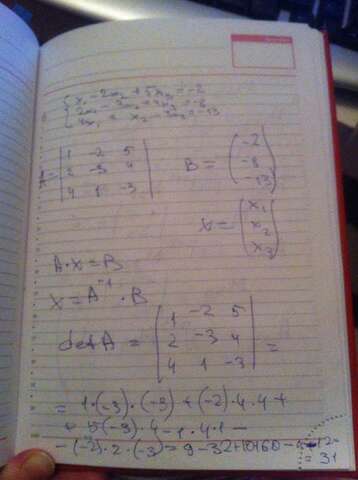 x₁ - 2x₂ + 5x₃ = -2
2x₁ - 3x₂ + 4x₃ = -8
4x₁ + x₂ - 3x₃ = -13
A = | 1 -2 5 |
| 2 -3 4 |
| 4 1 -3 |
B = ( -2 )
( -8 )
( -13 )
X = ( x₁ )
( x₂ )
( x₃ )
A·X = B
X = A⁻¹ · B
det A = | 1 -2 5 |
| 2 -3 4 | =
| 4 1 -3 |
= 1·(-3)·(-3) + (-2)·4·4 +
+ 5(-3)·4 - 1·4·1 -
-(-2)·2·(-3) = 9 - 32 +
= 31